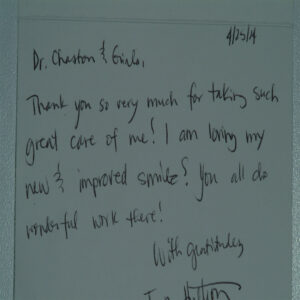 4/25/14
Dr. Chaston & Girls,
Thank you so very much for taking such
great care of me! I am loving my
new & improved smile! You all do
wonderful work there!
With gratitude,